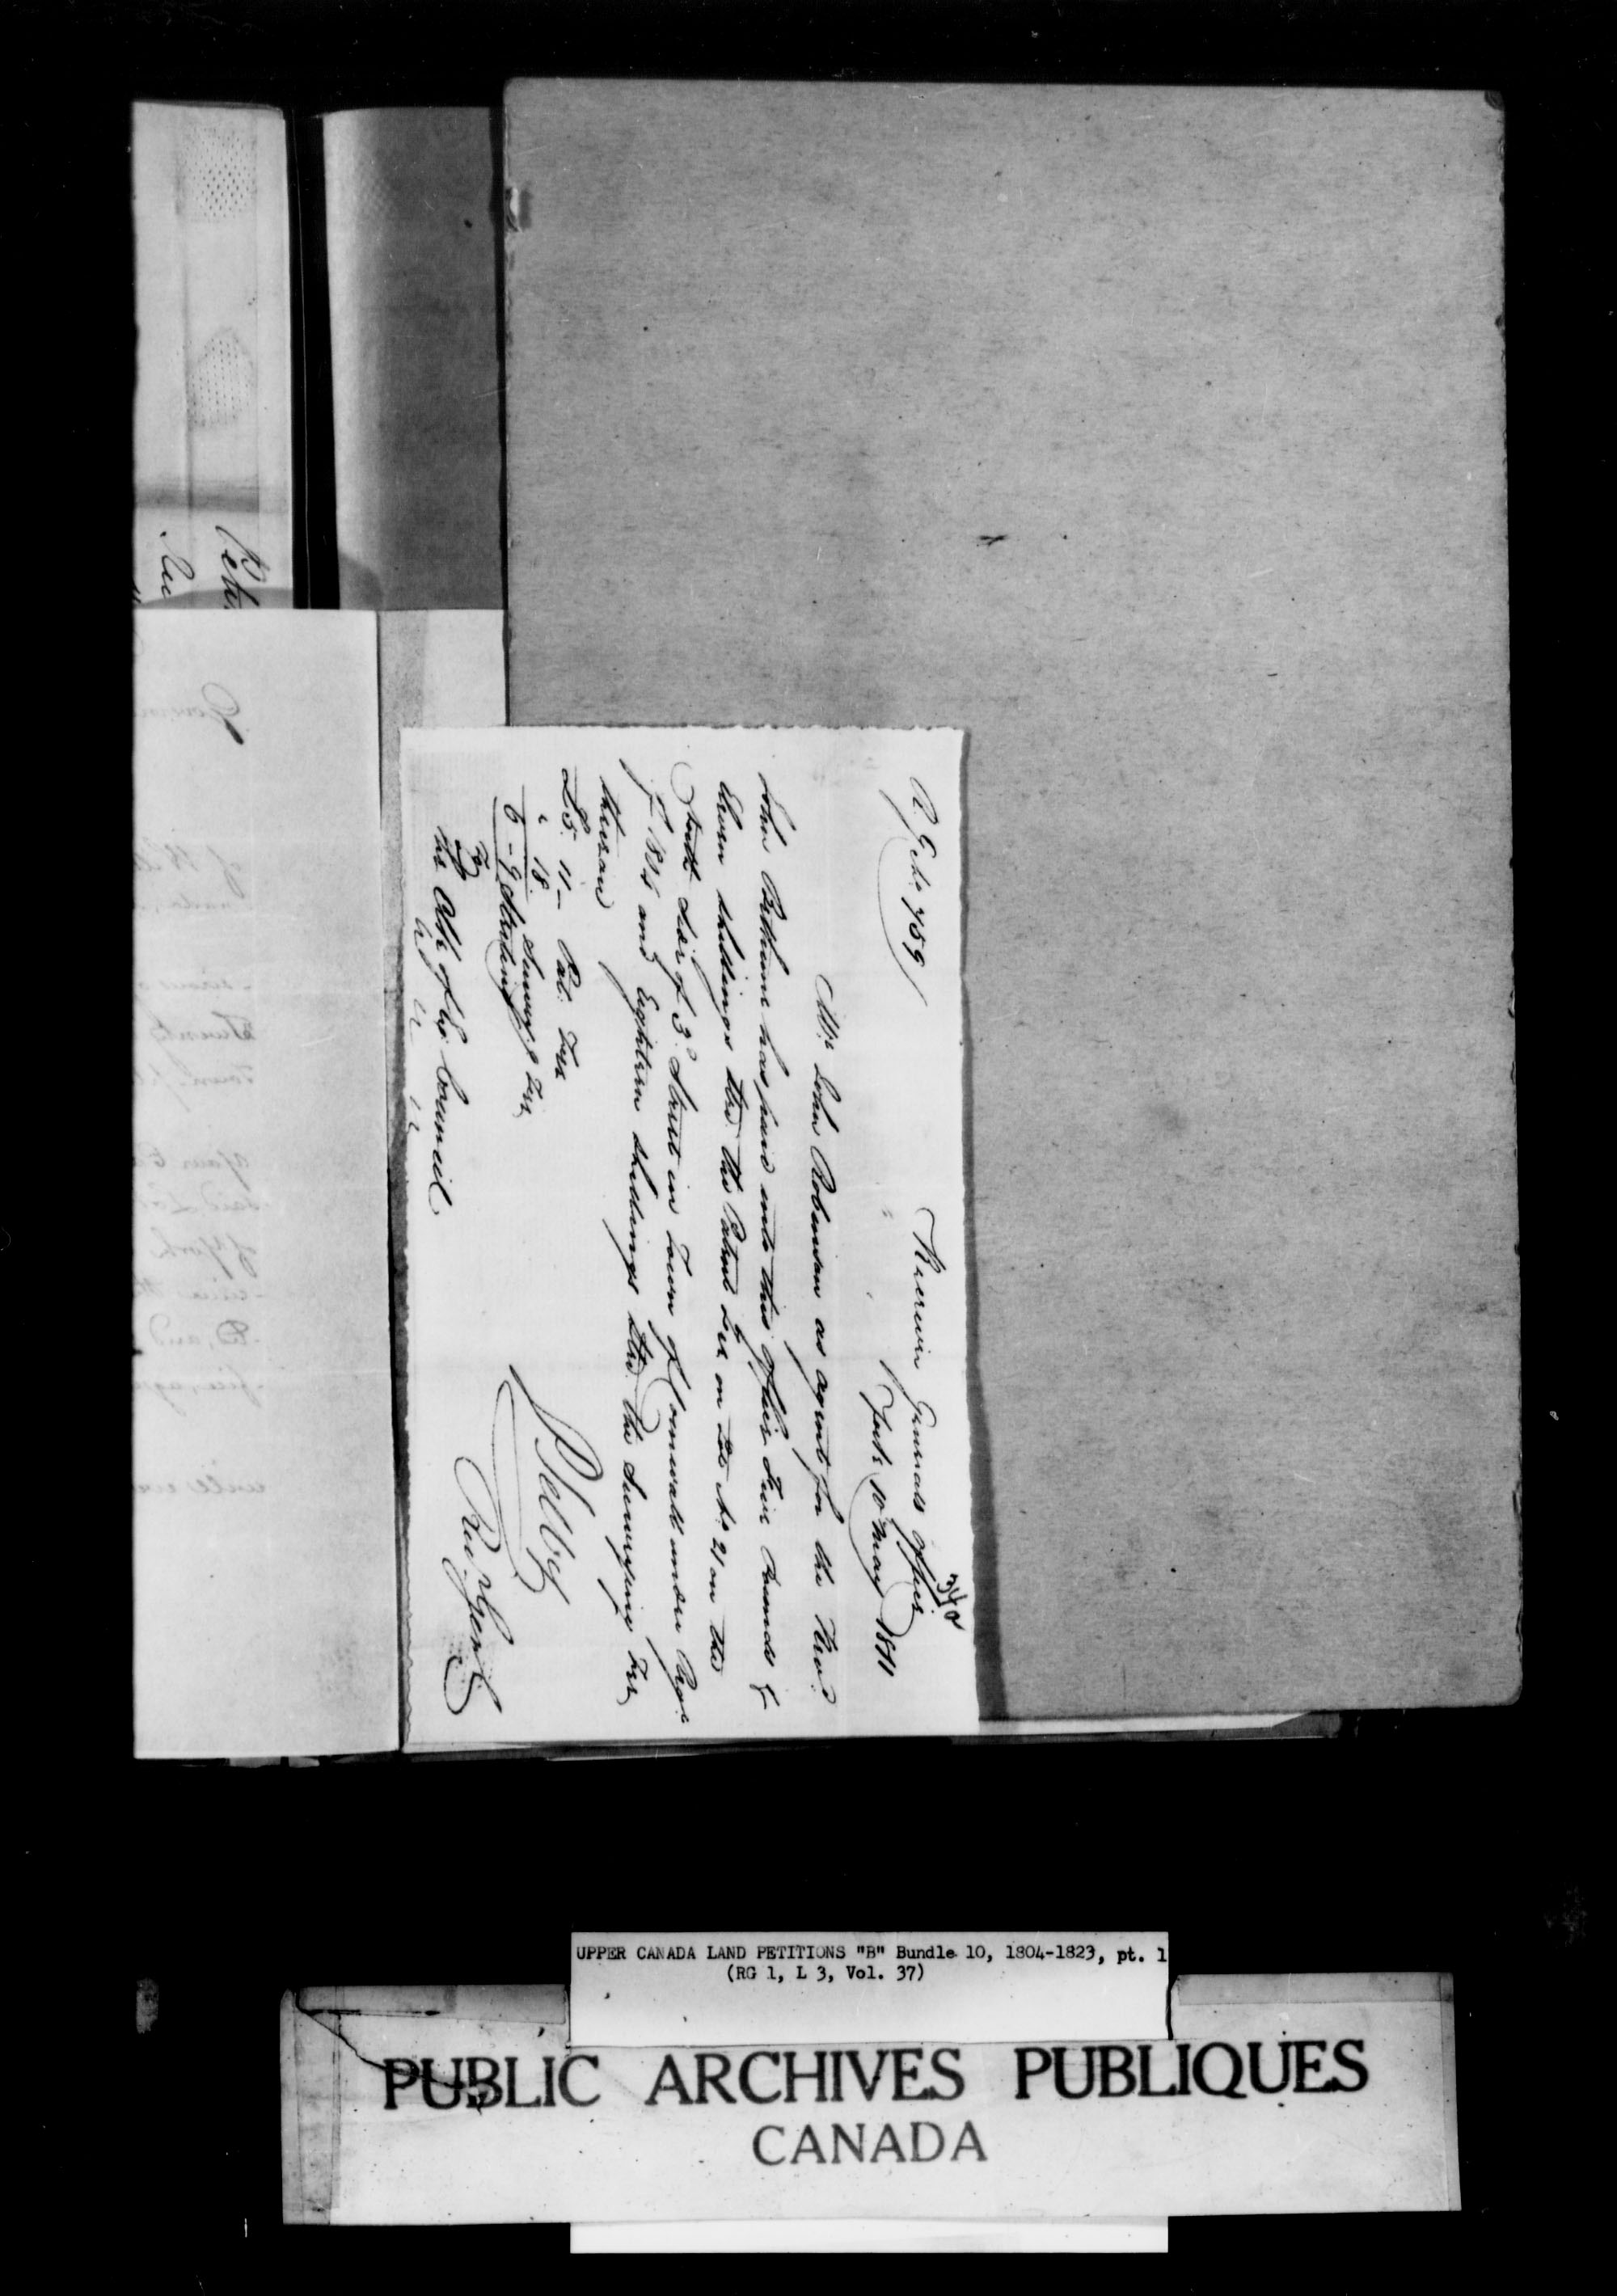 34a
R. G. No. 759
Receiver Generals Office
York 10 May 1811
Mr. John Robinson as agent for the Revd.
John Bethune has paid into this office Five Pounds &
Eleven shillings Ster. the Patent Fee on Lot No. 21 on the
South side of 3d. Street in Town of Cornwall under Regs.
of 1804 and Eighteen shillings Ster. the Surveying Fee
thereon
£5. 11 - Pat. Fee
" 18 Surveys. Fee
6 - 9 Sterling
To
the Clk of Ex. Council
&c &c &c
P Selby
Rec. Genl.
Petit
UPPER CANADA LAND PETITIONS "B" Bundle 10, 1804-1823, pt. 1
(RG 1, L 3, Vol. 37)
PUBLIC ARCHIVES PUBLIQUES
CANADA